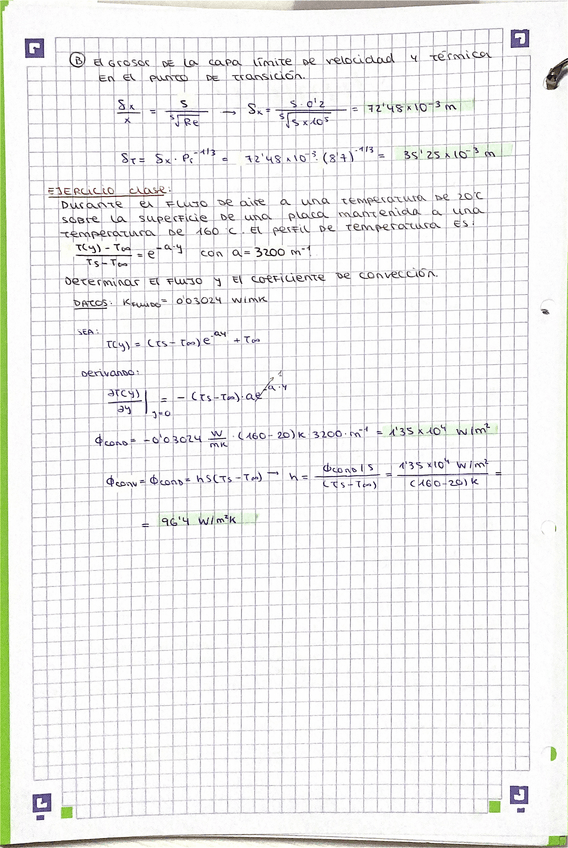 Ⓑ El grosor de la capa límite de velocidad y térmica
en el punto de transición.
δx/x = 5/⁵√Re → δx = 5·0'2/⁵√5x10⁵ = 72'48x10⁻³ m
δT = δx · Pr^-1/3 = 72'48x10⁻³·(8'7)^-1/3 = 35'25x10⁻³ m
EJERCICIO clase:
Durante el flujo de aire a una temperatura de 20℃
sobre la superficie de una placa mantenida a una
temperatura de 160 ℃. El perfil de temperatura es:
T(y)-T∞/Ts-T∞ = e^-a·y con a = 3200 m⁻¹.
Determinar el flujo y el coeficiente de convección.
DATOS: Kfluido = 0'03024 W/mK
SEA:
T(y) = (Ts-T∞)e^-ay + T∞
Derivando:
∂T(y)/∂y |y=0 = -(Ts-T∞)·ae^-a·y 1
ɸcond = -0'03024 W/mK ·(160-20)K 3200·m⁻¹ = 1'35x10⁴ W/m²
ɸconv = ɸcond = hS(Ts-T∞) → h = ɸcond/S/(Ts-T∞) = 1'35x10⁴ W/m²/(160-20)K =
= 96'4 W/m²K